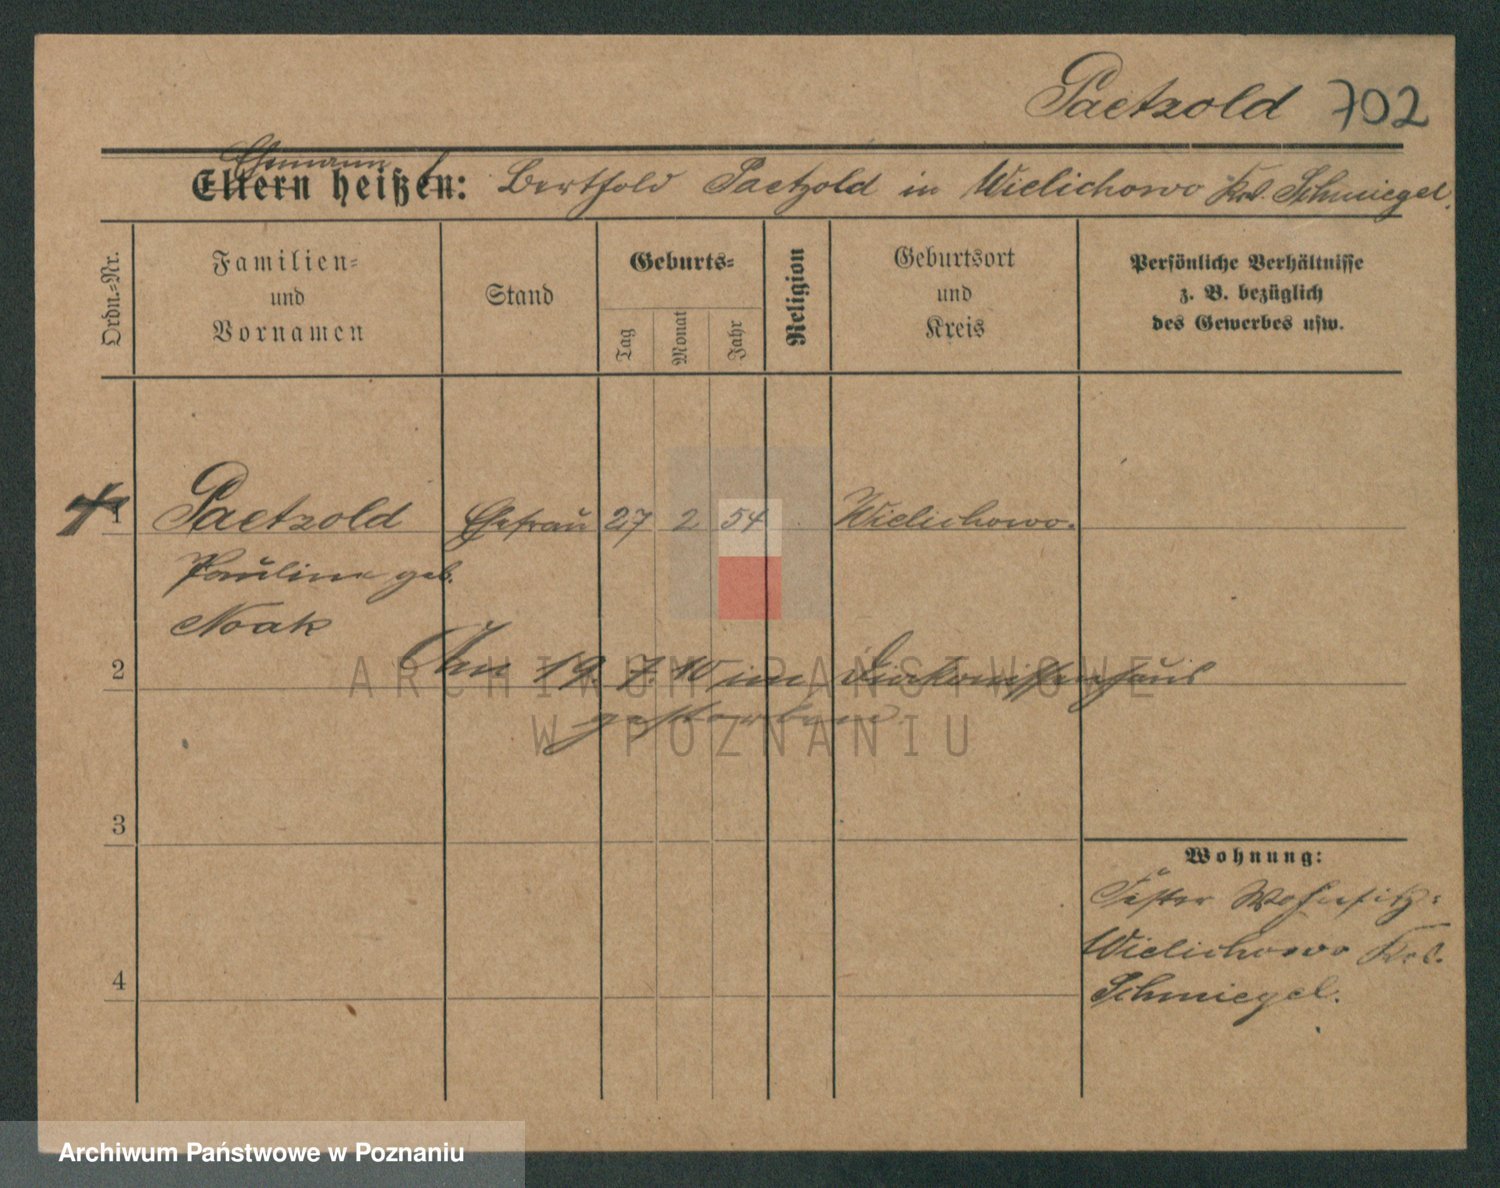 Paetzold 702
Ehemann
Eltern heißen: Berthold Paetzold in Wielichowo Krs. Schmiegel.
Ordn.=Nr.
Familien=
und
Vornamen
Stand
Geburts=
Tag
Monat
Jahr
Religion
Geburtsort
und
Kreis
Persönliche Verhältnisse
z. B. bezüglich
des Gewerbes usw.
1 Paetzold Ehefrau 27 2 54 Wielichowo.
Pauline geb.
Noak
2 Am 19. 7. 10 im Diakonissenhaus
gestorben.
ARCHIWUM PAŃSTWOWE
W POZNANIU
3
Wohnung:
Fester Wohnsitz:
Wielichowo Krs.
4 Schmiegel.
Archiwum Państwowe w Poznaniu